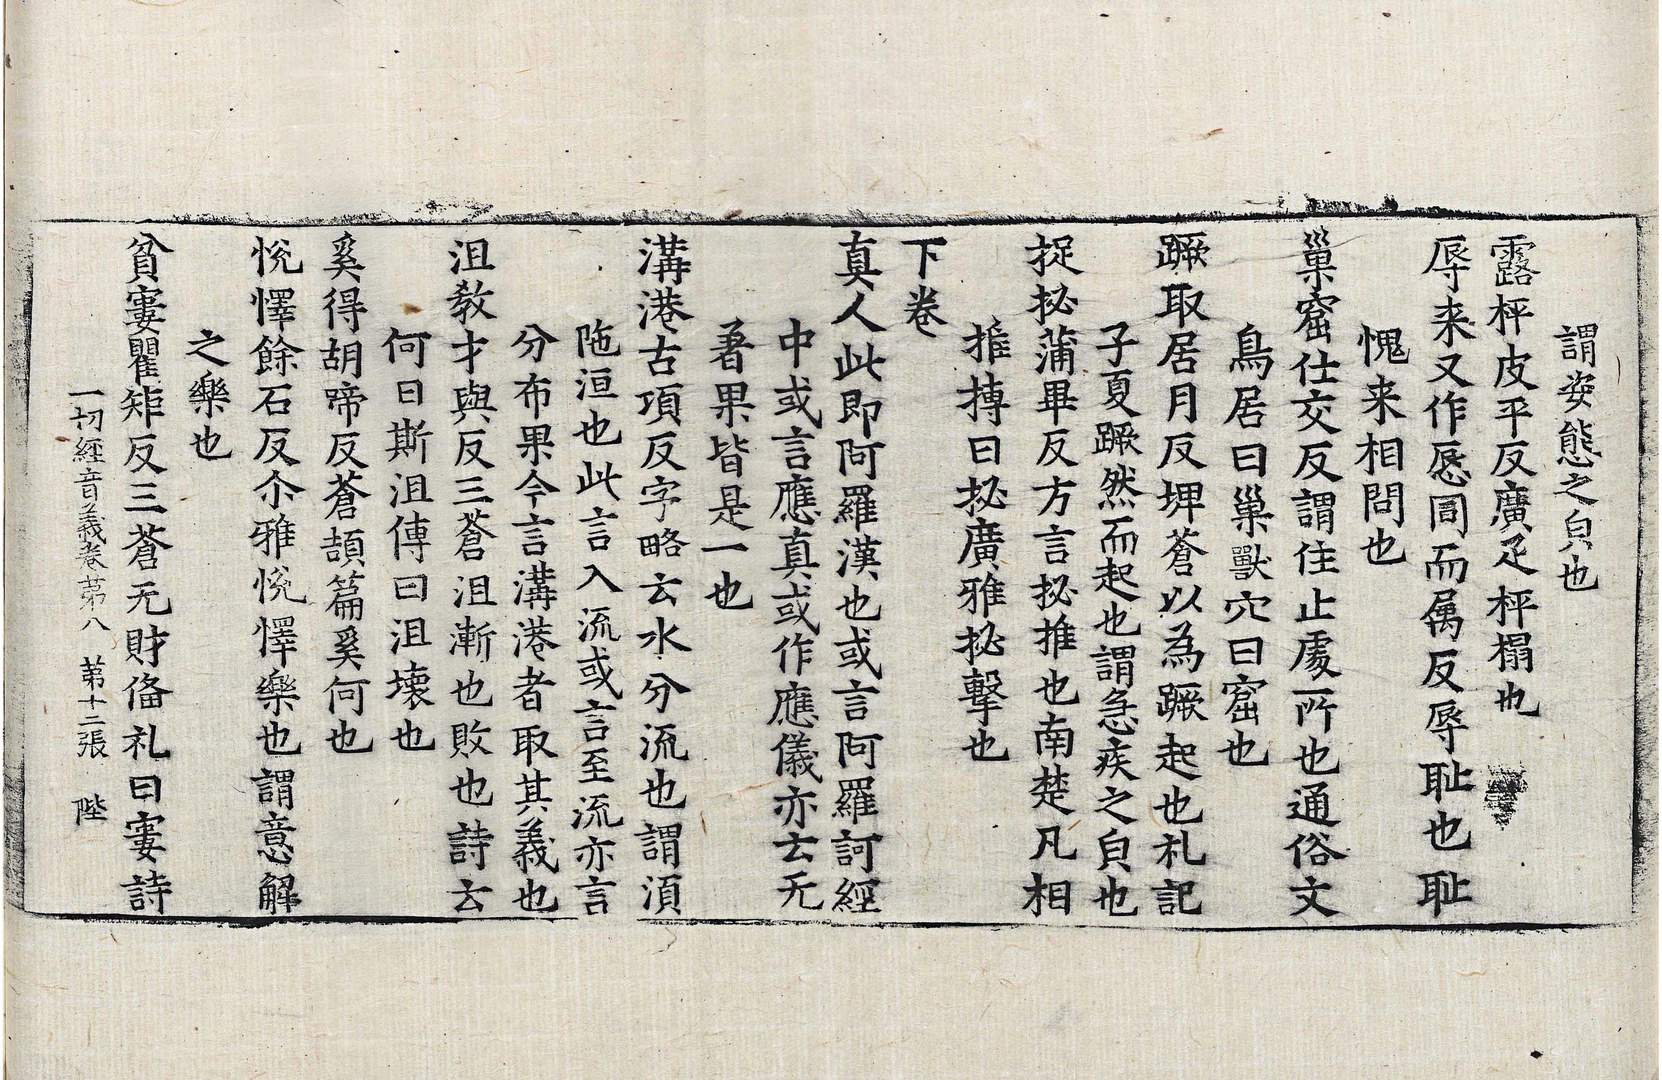 謂姿態之皃也
露枰皮平反廣疋枰榻也
辱来又作㥾同而属反辱耻也耻
愧来相問也
巢窟仕交反謂住止處所也通俗文
鳥居曰巢獸穴曰窟也
蹶取居月反埤蒼以為蹶起也礼記
子夏蹶然而起也謂急疾之皃也
捉㧙蒲畢反方言㧙推也南楚凡相
推搏曰㧙廣雅㧙擊也
下卷
真人此即阿羅漢也或言阿羅訶經
中或言應真或作應儀亦云无
著果皆是一也
溝港古項反字略云水分流也謂湏
陁洹也此言入流或言至流亦言
分布果今言溝港者取其義也
沮教才與反三蒼沮漸也敗也詩云
何日斯沮傳曰沮壞也
奚得胡啼反蒼頡篇奚何也
悅懌餘石反尒雅悅懌樂也謂意解
之樂也
貧寠瞿矩反三蒼无財俻礼曰寠詩
一切經音義卷苐八 苐十二張 陛